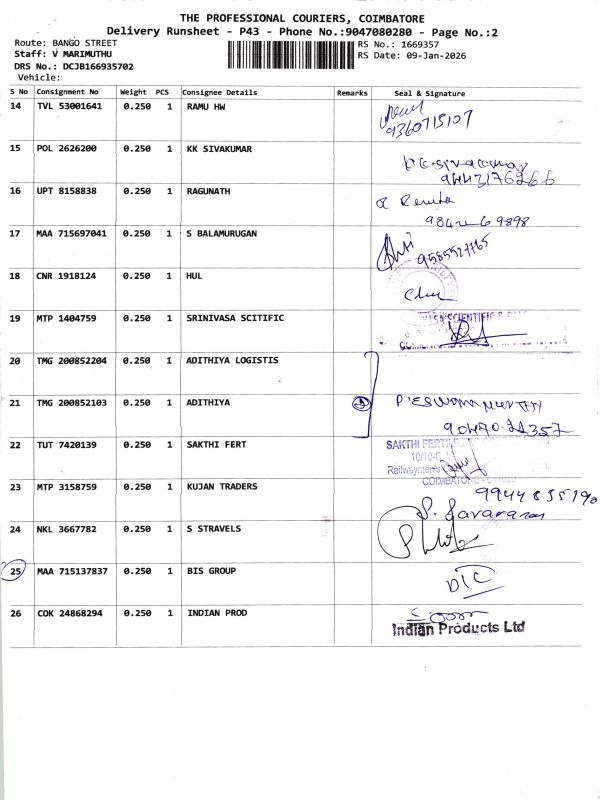 THE PROFESSIONAL COURIERS, COIMBATORE
Delivery Runsheet - P43 - Phone No.:9047080280 - Page No.:2
Route: BANGO STREET
Staff: V MARIMUTHU
DRS No.: DCJB166935702
Vehicle:
RS No.: 1669357
RS Date: 09-Jan-2026
S No Consignment No Weight PCS Consignee Details Remarks Seal & Signature
14 TVL 53001641 0.250 1 RAMU HW
9360715107
15 POL 2626200 0.250 1 KK SIVAKUMAR
K.C. Sivakumar
9443176266
16 UPT 8158838 0.250 1 RAGUNATH
17 MAA 715697041 0.250 1 S BALAMURUGAN
9585527765
18 CNR 1918124 0.250 1 HUL
19 MTP 1404759 0.250 1 SRINIVASA SCITIFIC
20 TMG 200852204 0.250 1 ADITHIYA LOGISTIS
21 TMG 200852103 0.250 1 ADITHIYA
22 TUT 7420139 0.250 1 SAKTHI FERT
SAKTHI FERTI
10/10-C
Railwaymen's
COIMBATORE
23 MTP 3158759 0.250 1 KUJAN TRADERS
9944835190
24 NKL 3667782 0.250 1 S STRAVELS
25 MAA 715137837 0.250 1 BIS GROUP
DIC
26 COK 24868294 0.250 1 INDIAN PROD
Indian Products Ltd